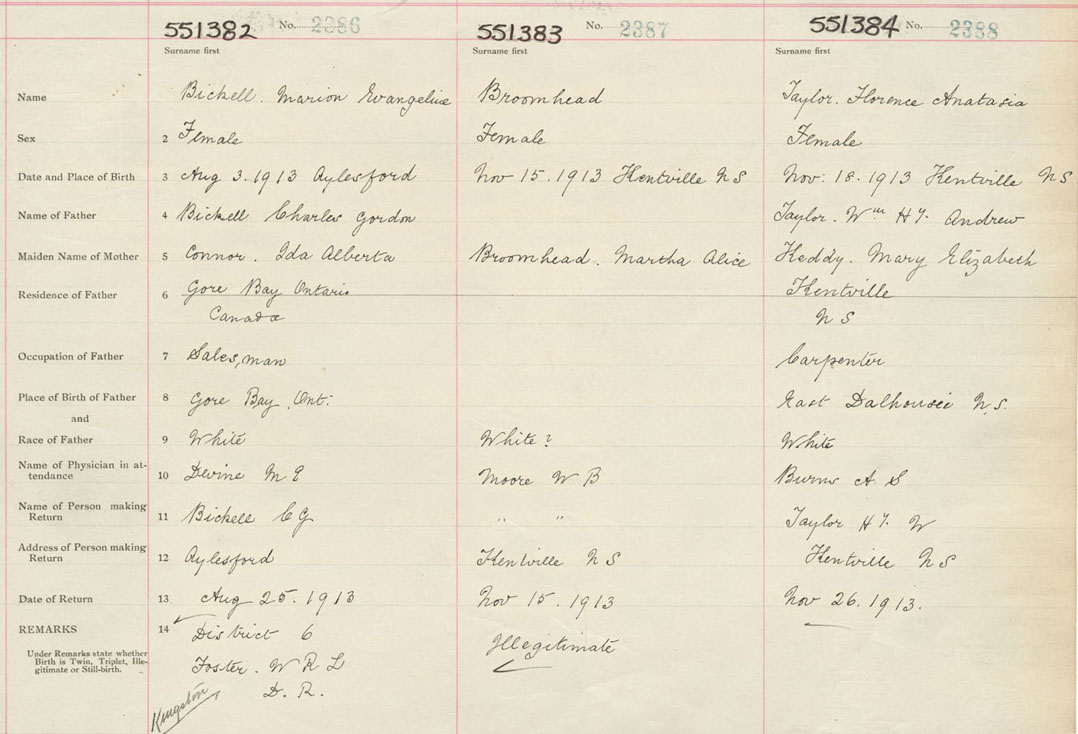 551382 No. 2386 551383 No. 2387 551384 No. 2388
Surname first Surname first Surname first
Name Bickell. Marion Evangeline Broomhead Taylor. Florence Anatasia
Sex 2 Female Female Female
Date and Place of Birth 3 Aug 3. 1913 Aylesford Nov 15. 1913 Kentville N S Nov: 18. 1913 Kentville N S
Name of Father 4 Bickell Charles Gordon Taylor. Wm Hy. Andrew
Maiden Name of Mother 5 Connor. Ida Alberta Broomhead. Martha Alice Keddy. Mary Elizabeth
Residence of Father 6 Gore Bay Ontario Kentville
Canada N S
Occupation of Father 7 Salesman Carpenter
Place of Birth of Father 8 Gore Bay Ont: East Dalhousie N.S.
and
Race of Father 9 White White? White
Name of Physician in at-
tendance 10 Devine M E Moore W B Burns A S
Name of Person making
Return 11 Bickell C G " " Taylor Hy. W
Address of Person making
Return 12 Aylesford Kentville N S Kentville N S
Date of Return 13 Aug 25. 1913 Nov 15. 1913 Nov 26. 1913.
REMARKS 14 District 6 Illegitimate
Under Remarks state whether
Birth is Twin, Triplet, Ille-
gitimate or Still-birth.
Foster. W R L
D. R.
Kingston